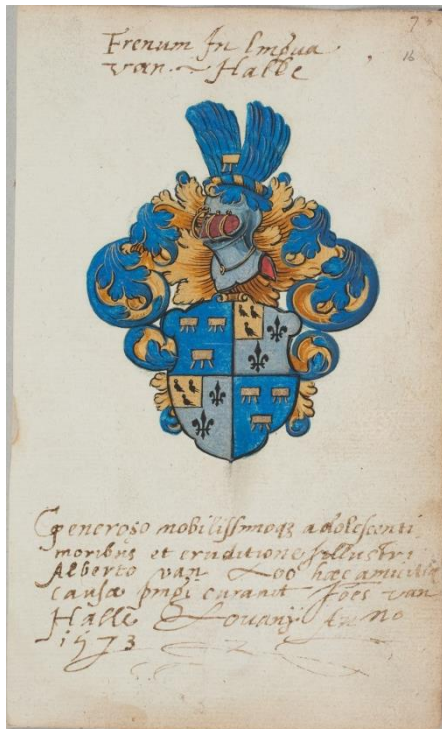 7
16
Frenum In lingua
van Halle
Generoso nobilissimoq3 adolescenti
moribus et eruditione Illustri
Alberto van Loo hæc amicitiæ
causa pingi curavit Joes van
Halle Lovanij Anno
1573